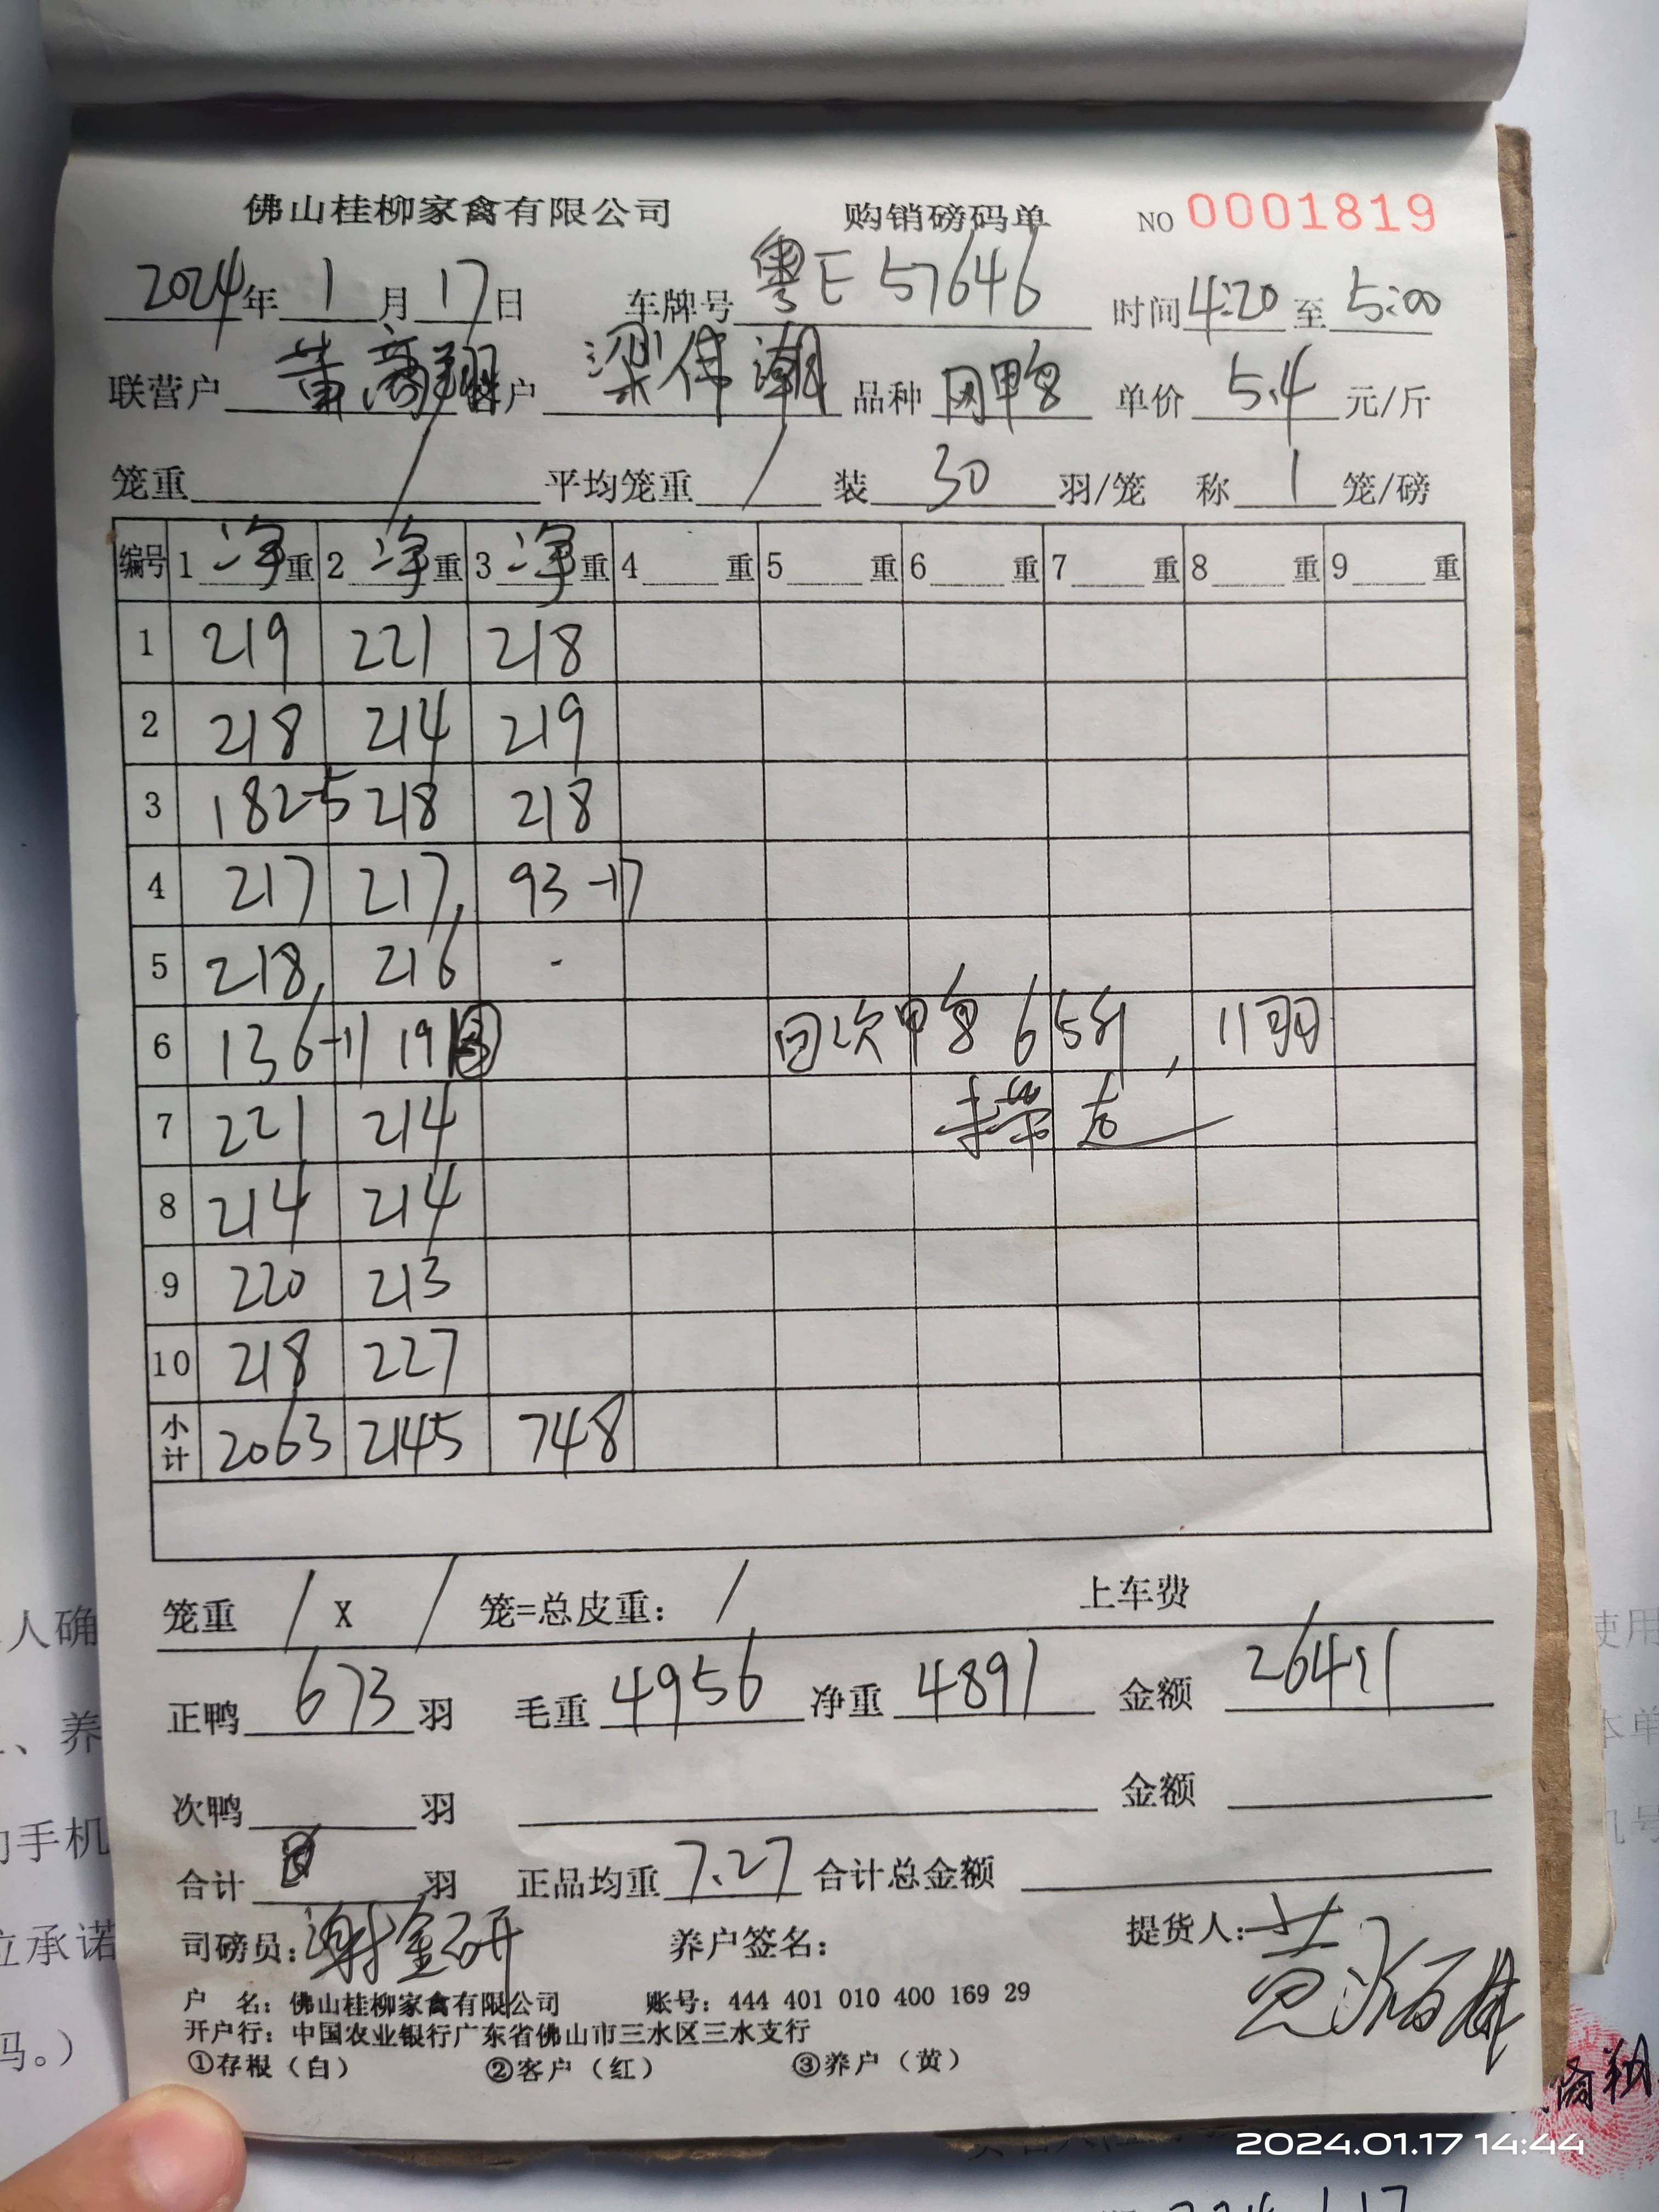 佛山桂柳家禽有限公司 购销磅码单 NO 0001819
2024年1月17日 车牌号 粤E57646 时间 4:20 至 5:00
联营户 黄裔翔 客户 梁伟潮 品种 网甲鸟 单价 5.4 元/斤
笼重 / 平均笼重 / 装 30 羽/笼 称 1 笼/磅
编号 1 净重 2 净重 3 净重 4 重 5 重 6 重 7 重 8 重 9 重
1 219 221 218
2 218 214 219
3 182-5 218 218
4 217 217, 93-17
5 218, 216 -
6 136-11 191 回次甲鸟65斤,11羽
7 221 214
8 214 214
9 220 213
10 218 227
小计 2063 2145 748
笼重 / X / 笼=总皮重: / 上车费
正鸭 673 羽 毛重 4956 净重 4891 金额 26411
次鸭 羽 金额
合计 羽 正品均重 7.27 合计总金额
司磅员:谢金研 养户签名: 提货人:黄
户 名:佛山桂柳家禽有限公司 账号:444 401 010 400 169 29
开户行:中国农业银行广东省佛山市三水区三水支行
①存根(白) ②客户(红) ③养户(黄)
人确
、养
手机
立承诺
码。)
使用
本单
机号
2024.01.17 14:44